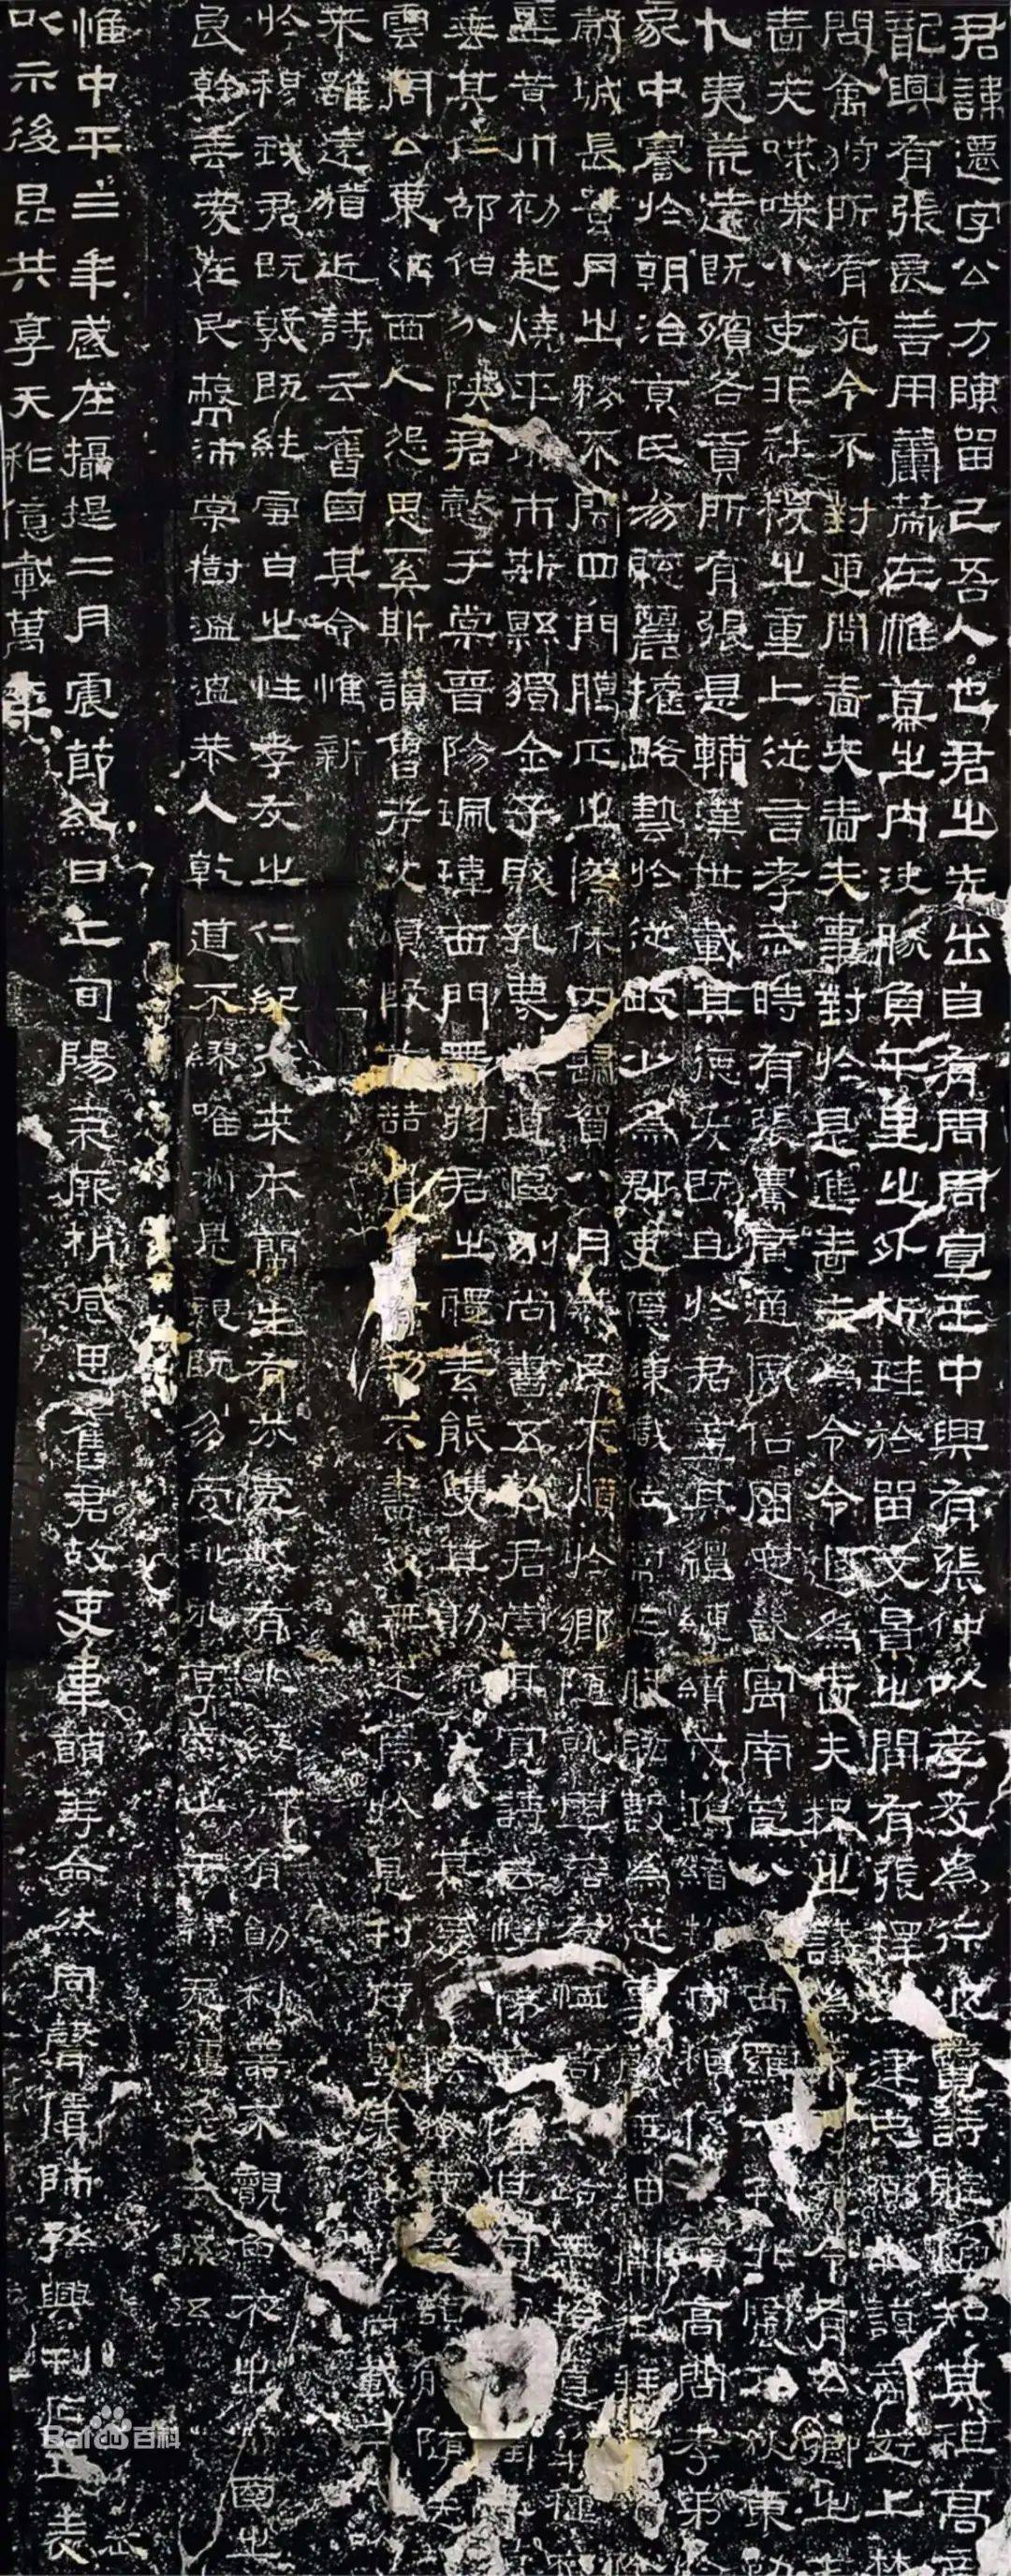 君諱遷字公方陳留己吾人也君之先出自有周周宣王中興有張仲以孝友為行披覽詩雅煥知其祖高
龍興有張良善用籌策在帷幕之內決勝負千里之外析珪於留文景之間有張釋之建忠弼之謨帝遊上林
問禽狩所有苑令不對更問嗇夫嗇夫事對於是進嗇夫為令令退為嗇夫釋之議為不可苑令有公卿之
嗇夫喋喋小吏非社稷之重上從言孝武時有張騫廣通風俗開定畿寓南苞八蠻西羈六戎北震五狄東
九夷荒遠既殯各貢所有張是輔漢世載其德爰既且於君蓋其繵縺纘戎鴻緒牧守相係不殞高問孝弟
家中謇於朝治京氏易聰麗權略藝於從畋少為郡吏隱練職位常在股肱數為從事聲無細聞徵拜郎
城長蠶月之務不閉四門臘正之僚休囚歸賀八月筭民不煩於鄉隨就虛落存恤高年路無拾遺犁種
黃巾初起燒平城市斯縣獨全子賤孔蔑其道區別尚書五教君崇其寬詩云愷悌君隆其恩東里
垂其仁邵伯分陝君懿于棠晉陽珮瑋西門帶弦君之體素能雙其勛流化八基遷蕩陰令吏民頡頏隨送
雲周公東征西人怨思奚斯讚魯考父頌殷前喆遺芳有功不書後無述焉於是刊石豎表銘勒萬載
來雖遠猶近詩云舊國其命惟新
於穆我君既敦既純雪白之性孝友之仁紀行來本蘭生有芬克岐有兆綏御有勛利器不覿魚不出淵國之
良幹垂愛在民蔽沛棠樹溫溫恭人乾道不繆唯淑是親既多受祉永享南山干祿無疆子子孫孫
惟中平三年歲在攝提二月震節紀日上旬陽氣厥析感思舊君故吏韋萌等僉然同聲賃師孫興刊石立表
以示後昆共享天祚億載萬年
Baidu百科